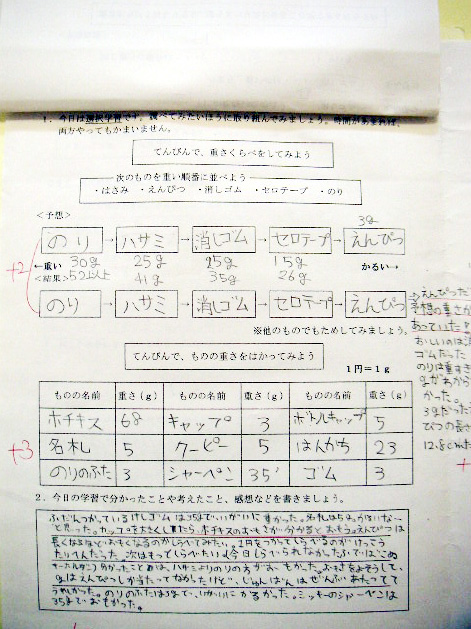 1．今日は選択学習です。調べてみたいほうに取り組んでみましょう。時間があまれば、
両方やってもかまいません。
てんびんで、重さくらべをしてみよう
次のものを重い順番に並べよう
・はさみ ・えんぴつ ・消しゴム ・セロテープ ・のり
＜予想＞
3g
のり→ハサミ→消しゴム→セロテープ→えんぴつ
←重い 30g 25g 25g 15g かるい→
＜結果＞ 52以上 41g 35g 26g
+2
のり→ハサミ→消しゴム→セロテープ→えんぴつ
※他のものでもためしてみましょう。
てんびんで、ものの重さをはかってみよう
1円＝1g
ものの名前 重さ（g） ものの名前 重さ（g） ものの名前 重さ（g）
ホチキス 68 キャップ 3 ボトルキャップ 5
名札 5 クーピー 5 はんかち 23
のりのふた 3 シャーペン 35 ゴム 3
+3
2．今日の学習で分かったことや考えたこと、感想などを書きましょう。
ふだんつかっているけしゴムは35gで、いがいに重かった。名札は5g
と思った。
ホチキスのおもさが分かると思う。えんぴつは
長くなるほどおもくなるのかしらべてみたい。1円をつかってしらべるのがけっこう
たいへんだった。次はもってしらべたいよ。今日しらべられなかった
分かったことは、ハサミよりのりの方がおもかった。おもさをよそうして、
gはえんぴつしか当たってなかったけど、じゅんばんはぜんぶあたってて
うれしかった。のりのふたは3gで、いがいにかるかった。ミッキーのシャーペンは
35gでおもかった。
えんぴつだ
予想の重さが
あっていた
おしいのは消
ゴムだった
のりは重すぎ
gがわから
かった。
3gだった
ぴつの長さ
12.8cmだった
+